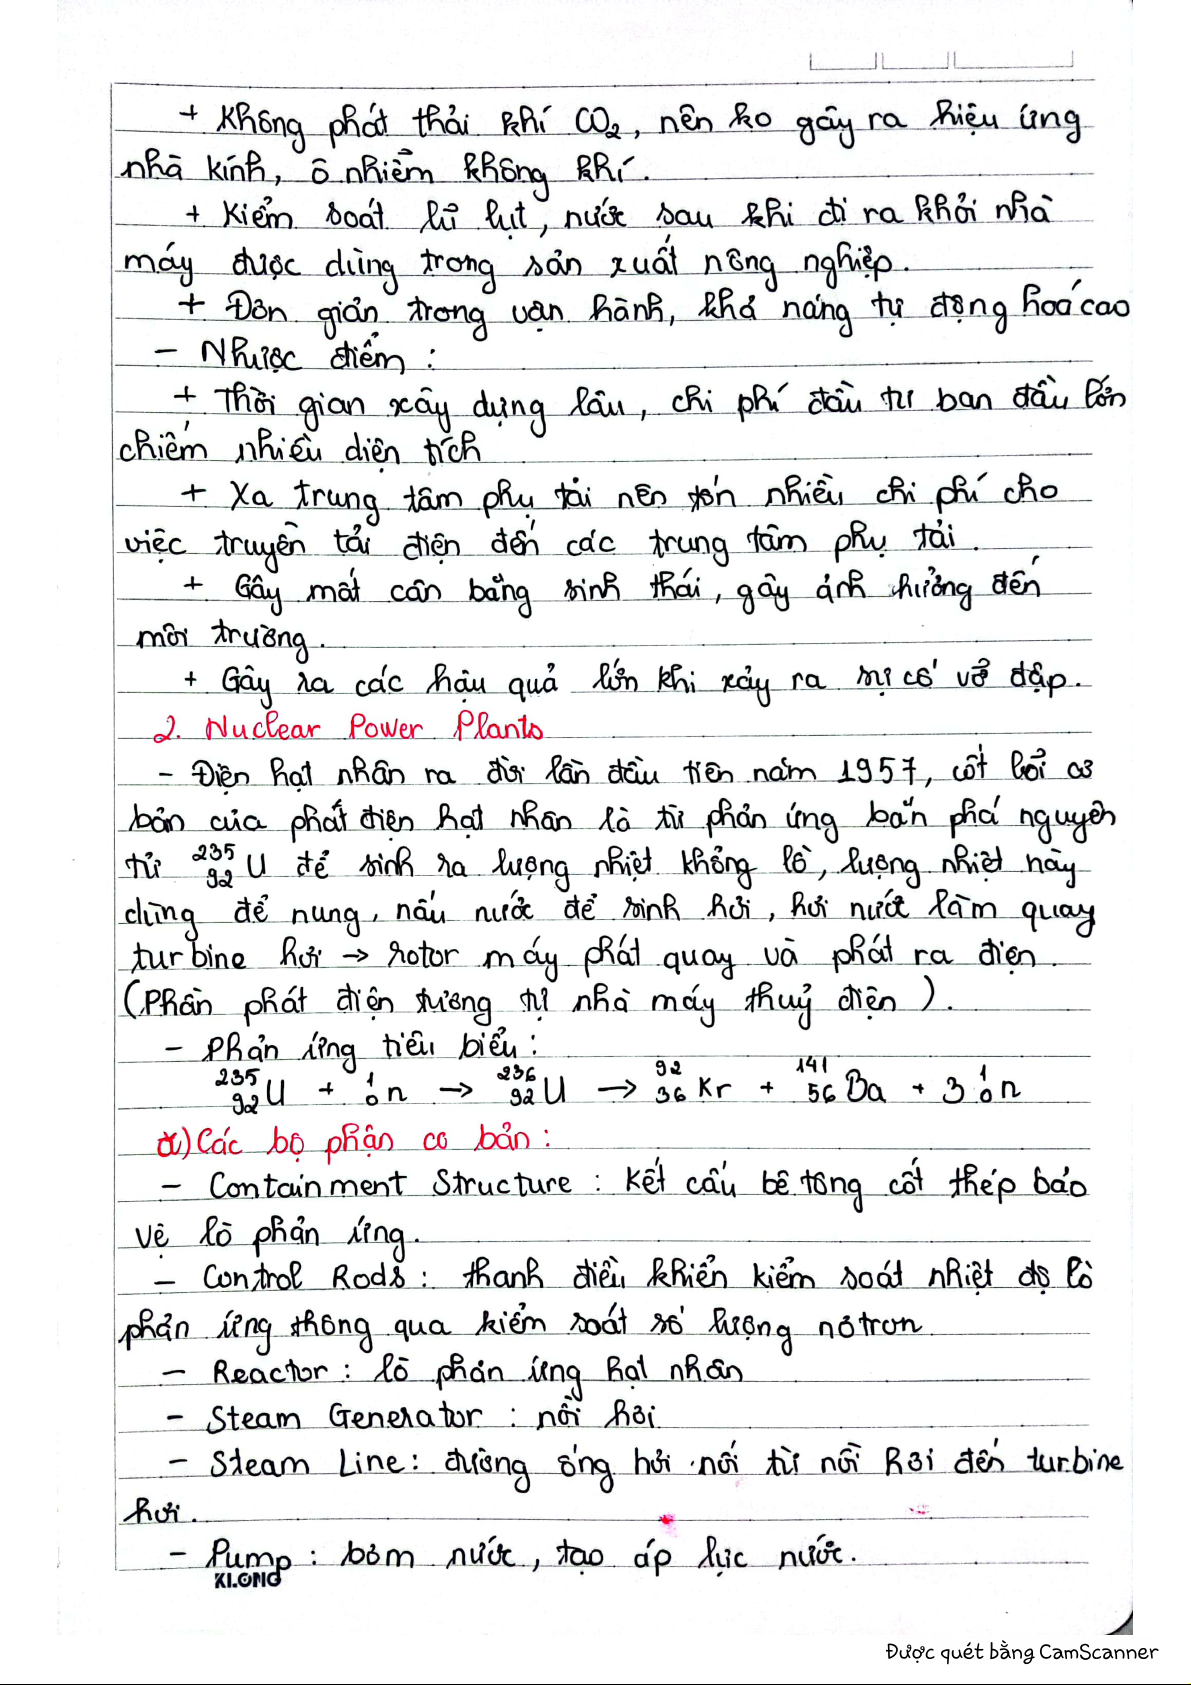 + Không phát thải khí CO₂, nên ko gây ra hiệu ứng
nhà kính, ô nhiễm không khí.
+ Kiểm soát lũ lụt, nước sau khi đi ra khỏi nhà
máy được dùng trong sản xuất nông nghiệp.
+ Đơn giản trong vận hành, khả năng tự động hoá cao
- Nhược điểm :
+ Thời gian xây dựng lâu, chi phí đầu tư ban đầu lớn
chiếm nhiều diện tích
+ Xa trung tâm phụ tải nên tốn nhiều chi phí cho
việc truyền tải điện đến các trung tâm phụ tải.
+ Gây mất cân bằng sinh thái, gây ảnh hưởng đến
môi trường.
+ Gây ra các hậu quả lớn khi xảy ra sự cố vỡ đập.
2. Nuclear Power Plants
- Điện hạt nhân ra đời lần đầu tiên năm 1957, cốt lõi cơ
bản của phát điện hạt nhân là từ phản ứng bắn phá nguyên
tử ²³⁵₉₂U để sinh ra lượng nhiệt khổng lồ, lượng nhiệt này
dùng để nung, nấu nước để sinh hơi, hơi nước làm quay
turbine hơi → rotor máy phát quay và phát ra điện.
(Phần phát điện tương tự nhà máy thuỷ điện).
- Phản ứng tiêu biểu :
²³⁵₉₂U + ¹₀n → ²³⁶₉₂U → ⁹²₃₆Kr + ¹⁴¹₅₆Ba + 3 ¹₀n
a) Các bộ phận cơ bản :
- Containment Structure : Kết cấu bê tông cốt thép bảo
vệ lò phản ứng.
- Control Rods : thanh điều khiển kiểm soát nhiệt độ lò
phản ứng thông qua kiểm soát số lượng nơtron
- Reactor : lò phản ứng hạt nhân
- Steam Generator : nồi hơi
- Steam Line : đường ống hơi nối từ nồi hơi đến turbine
hơi.
- Pump : bơm nước, tạo áp lực nước.
KLONG
Được quét bằng CamScanner